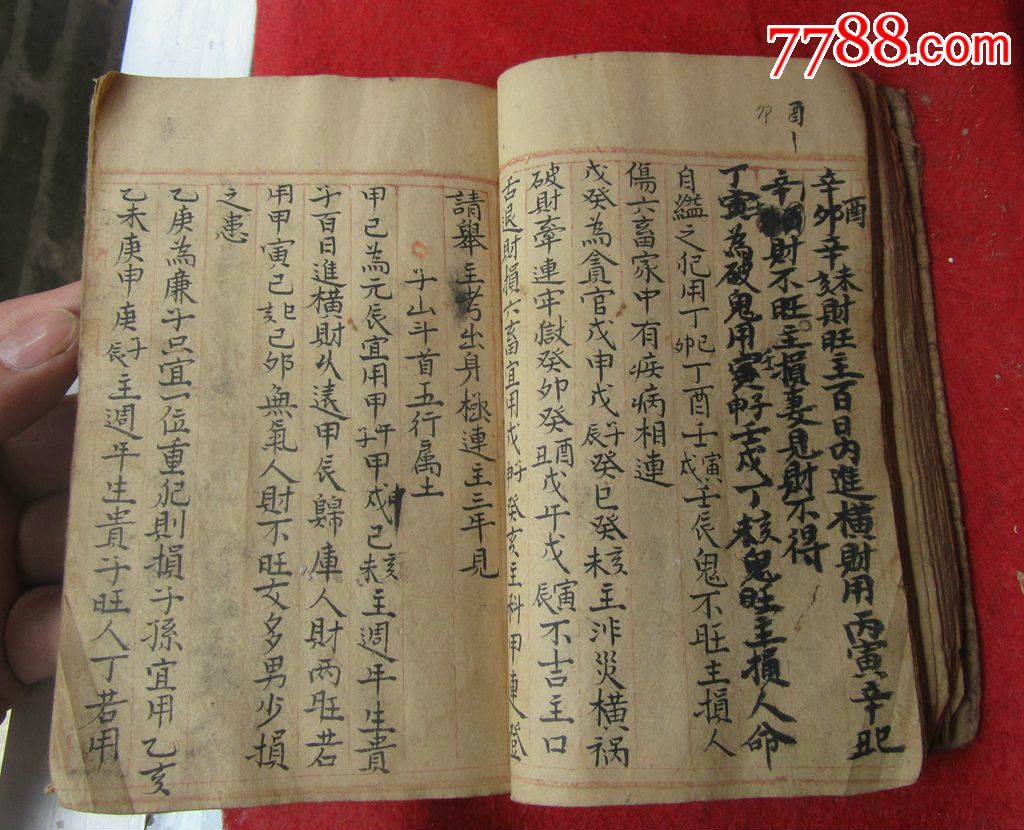 7788.com
酉
卯
辛卯酉辛未亥財旺主百日內進橫財用丙寅辛巳
辛財不旺主損妻見財不得
丁寅為破鬼用寅子壬戌丁未亥鬼旺主損人命
自縊之犯用丁卯巳丁酉壬寅戌壬辰鬼不旺主損人
傷六畜家中有疾病相連
戊癸為貪官戊申戊子辰癸巳癸未亥主非災橫祸
破財牽連牢獄癸卯癸酉丑戊午戊寅辰不吉主口
舌退財損六畜宜用戊癸亥主科甲連登
請舉主考出身極連主三年見
子山斗首五行属土
甲己為元辰宜用甲午子甲戌申己亥未主週年生貴
子百日進橫財以遠甲辰歸庫人財兩旺若
用甲寅己巳亥己卯無氣人財不旺女多男少損
之患
乙庚為廉子只宜一位重犯則損子孫宜用乙亥
乙未庚申庚子辰主週年生貴子旺人丁若用